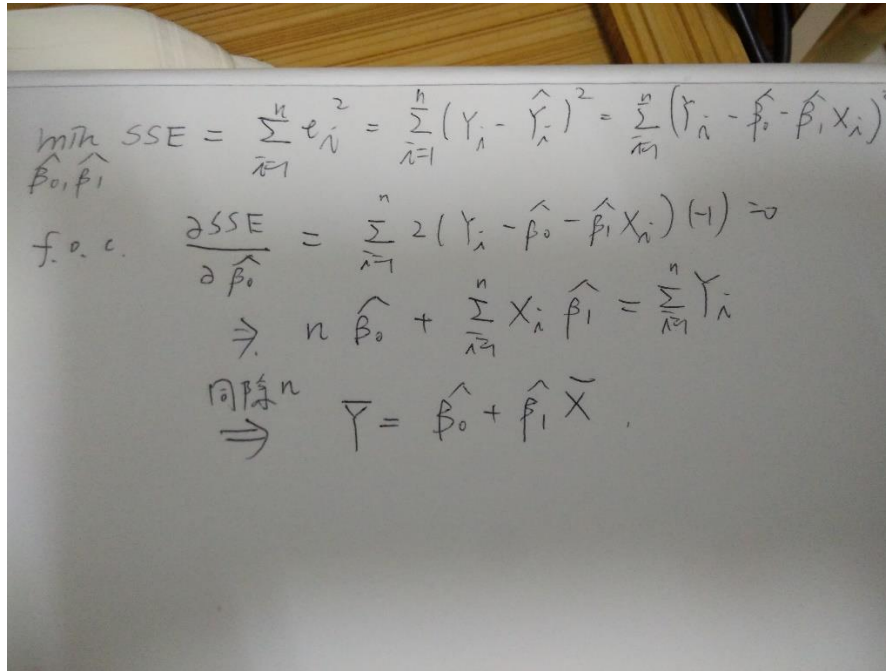 min SSE = Σ_{i=1}^{n} e_i² = Σ_{i=1}^{n} (Y_i - Ŷ_i)² = Σ_{i=1}^{n} (Y_i - β̂₀ - β̂₁ X_i)²
β̂₀, β̂₁
f.o.c. ∂SSE / ∂β̂₀ = Σ_{i=1}^{n} 2(Y_i - β̂₀ - β̂₁ X_i)(-1) = 0
⇒ n β̂₀ + Σ_{i=1}^{n} X_i β̂₁ = Σ_{i=1}^{n} Y_i
同除n
⇒ Ȳ = β̂₀ + β̂₁ X̄.